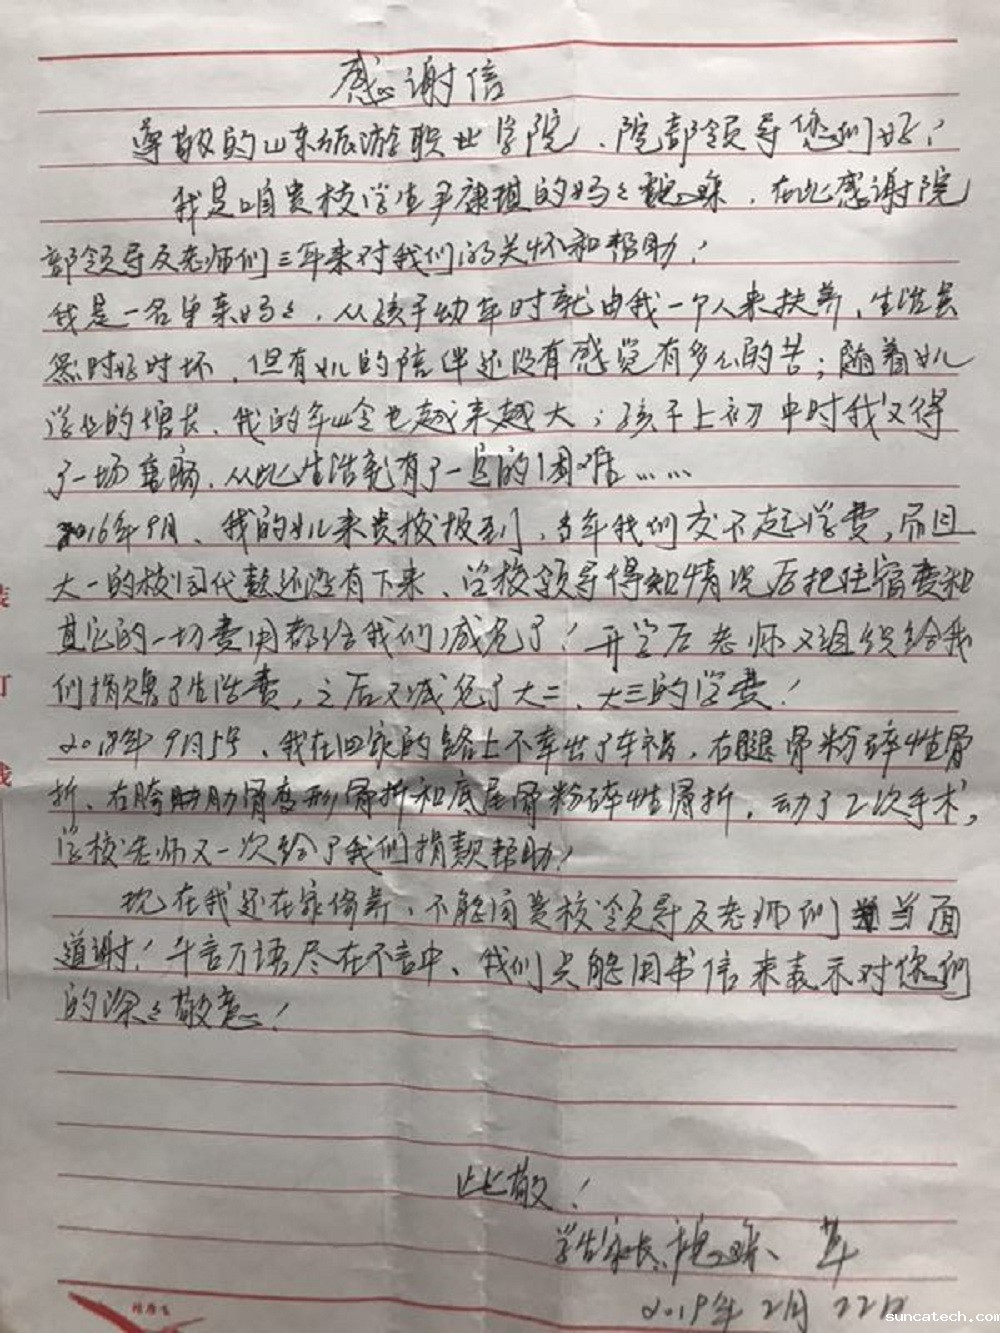 感谢信
尊敬的山东旅游职业学院、院部领导您们好！
我是咱贵校学生尹康琪的妈妈，在此感谢院
部领导及老师们三年来对我们的关怀和帮助！
我是一名单亲妈妈，从孩子幼年时就由我一个人来扶养，生活虽
然时好时坏，但有女儿的陪伴还没有感觉有多么的苦；随着女儿
学业的增长，我的年龄也越来越大；孩子上初中时我又得
了一场重病，从此生活就有了一定的困难……
2016年9月、我的女儿来贵校报到，当年我们交不起学费，而且
大一的校园代款还没有下来、学校领导得知情况后把住宿费和
其它的一切费用都给我们减免了！开学后老师又组织给我
们捐赠了生活费，之后又减免了大二、大三的学费！
2018年9月5号、我在回家的路上不幸出了车祸，右腿骨粉碎性骨
折、右胯肋骨变形骨折和底尾骨粉碎性骨折，动了2次手术，
学校老师又一次给了我们捐款帮助！
现在我还在家修养、不能向贵校领导及老师们当面
道谢！千言万语尽在不言中、我们只能用书信来表示对你们
的深深敬意！
此敬！
学生家长：
2019年2月22日
suncatech.com